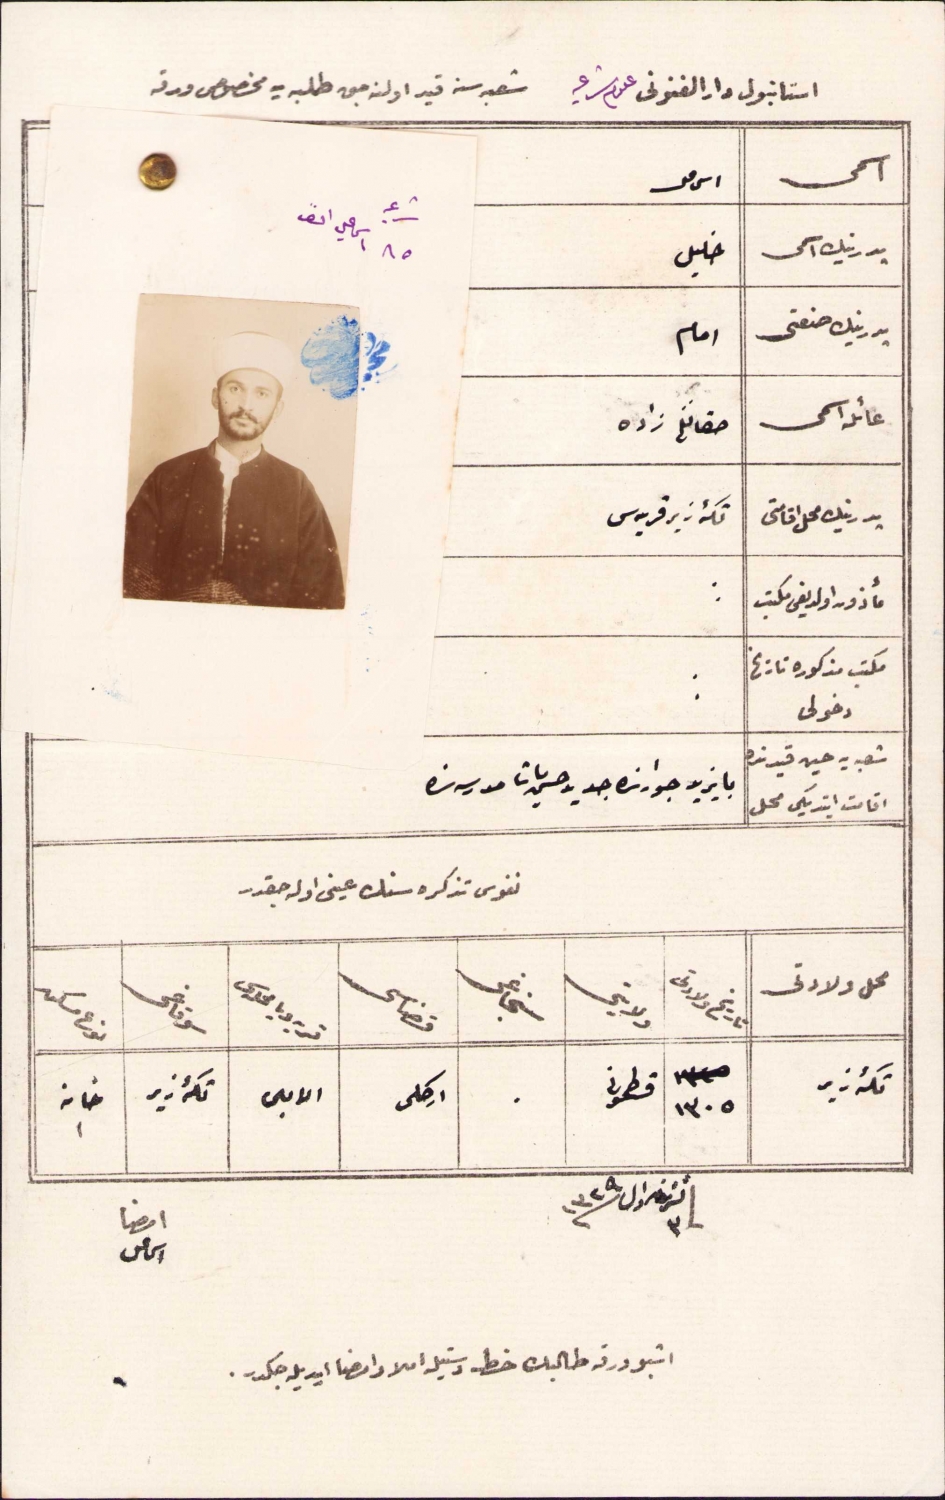 استانبول دار الفنونی علوم شرعیه شعبه سنه قید اولنه جق طلبه یه مخصوص ورقه
شرعیه
٨٥ اسماعیل افندی
اسمی
اسماعیل
پدرینك اسمی
خلیل
پدرینك صنعتی
امام
عائله اسمی
زاده
پدرینك محل اقامتی
تكۀ زیر قریه سی
مأذون اولدیغی مكتب
:
مكتب مذكوره تاریخ
دخولی
:
شعبه یه حین قیدنده
اقامت ایتدیكی محل
بایزید جوارنده جدید حسن پاشا مدرسه سنده
نفوس تذكره سنك عینی اوله جقدر
محل ولادتی
تاریخ ولادتی
ولایتی
سنجاغی
قضاسی
قریه ویا محله سی
سوقاغی
نوع مسكن
تكۀ زیر
١٣٠٥
قسطمونی
.
اركلی
الابلی
تكۀ زیر
خانه
١
تشرین اول
٣
امضا
اسماعیل
اشبو ورقه طالبك خط دستیله املا و امضا ایدیله جكدر.